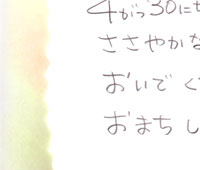 4がつ30に
ささやかな
おいで く
おまち し